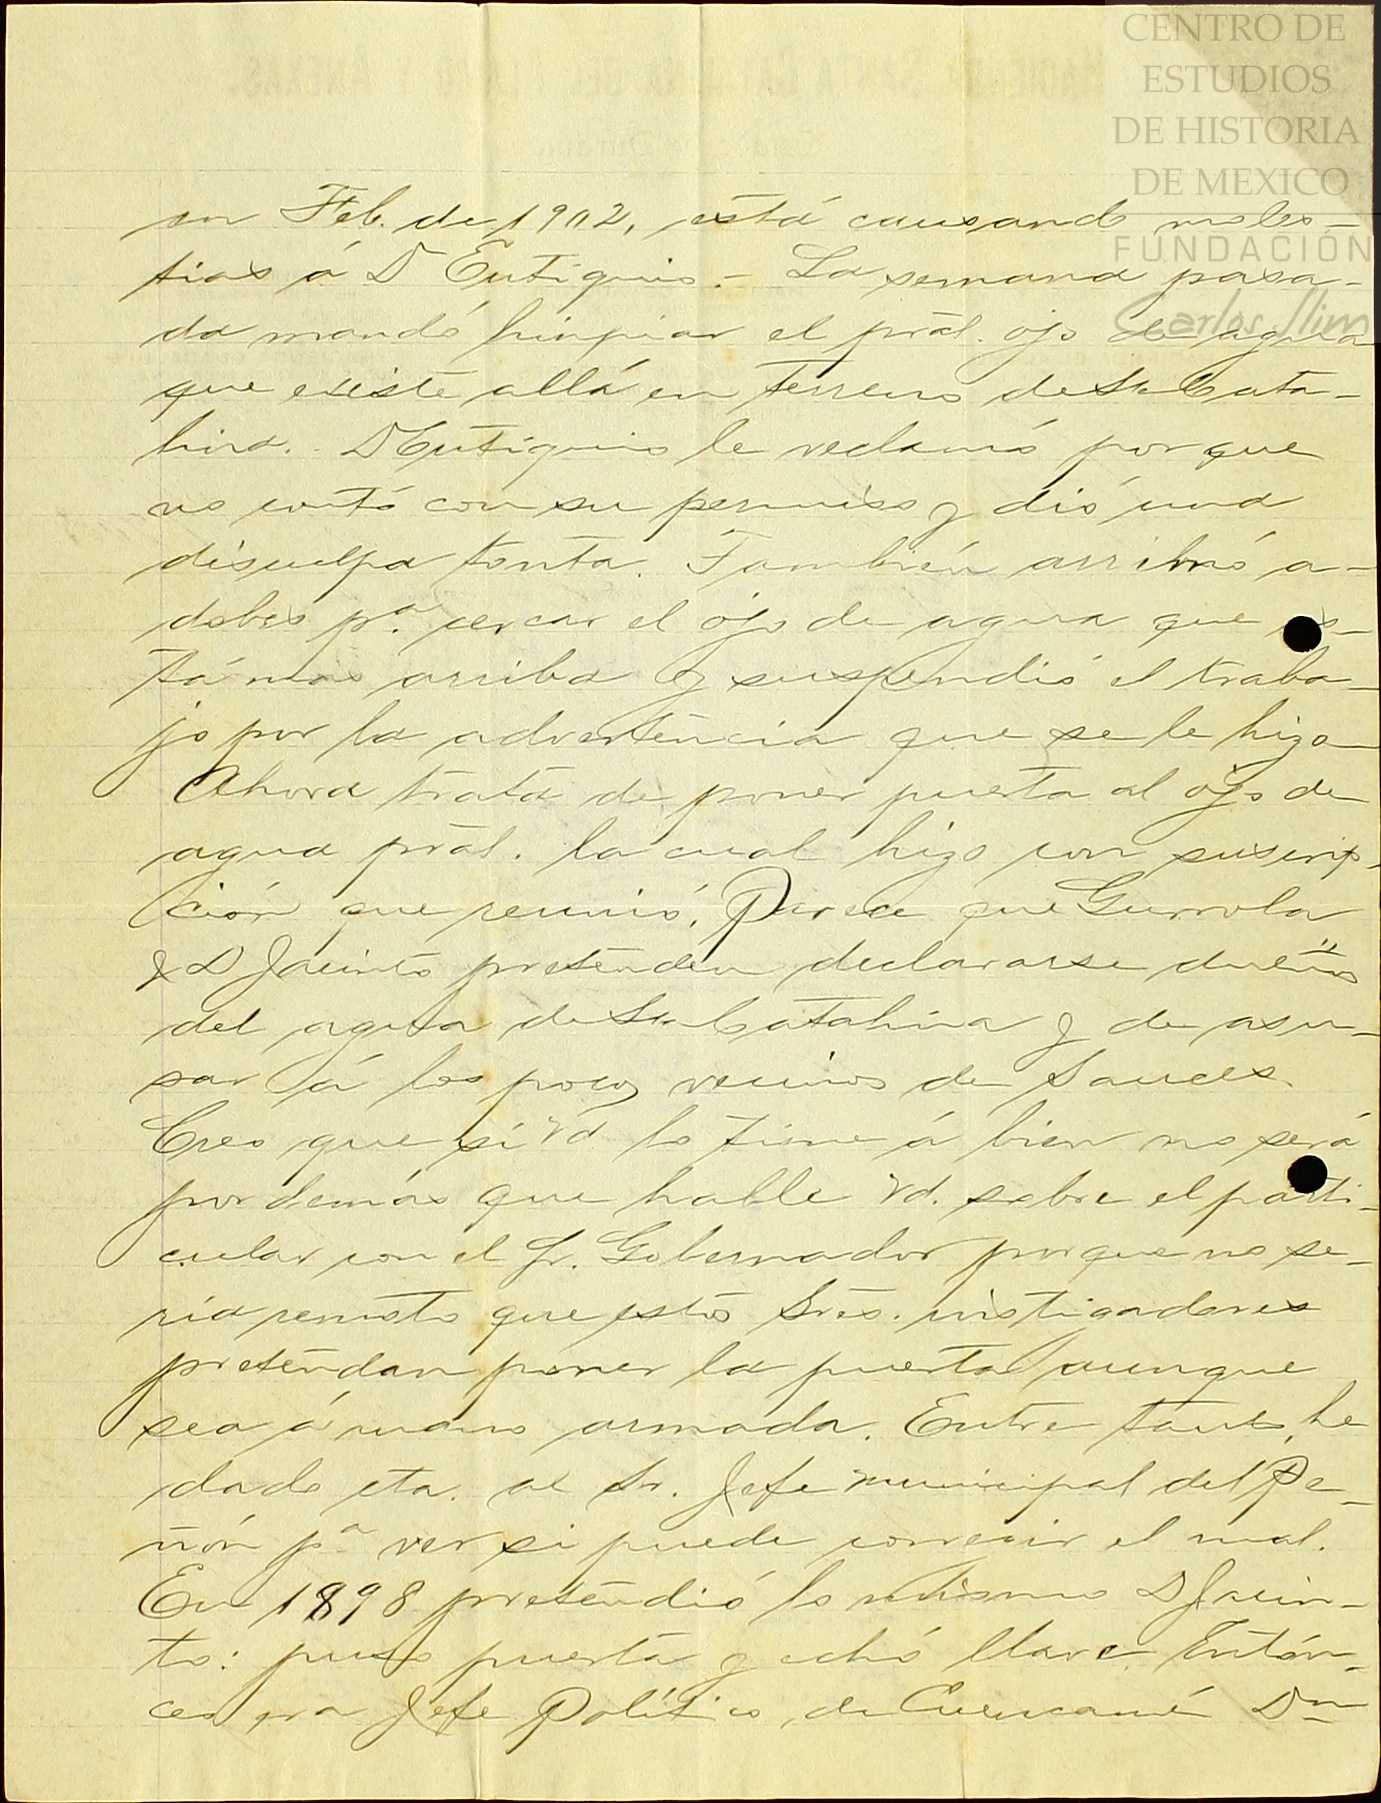 CENTRO DE
ESTUDIOS
DE HISTORIA
DE MEXICO
FUNDACIÓN
Carlos Slim
en Feb. de 1902, está causando moles-
tias á Dn Eutiquio.- La semana pasa-
da mandó limpiar el prâl. ojo de agua
que existe allá en terreno de Sta Cata-
lina. Dn Eutiquio le reclamó porque
no contó con su permiso y dió una
disculpa tonta. También arrimó a-
dobes pª. cercar el ojo de agua que es-
tá mas arriba y suspendió el traba-
jo por la advertencia que se le hizo-
Ahora trata de poner puerta al ojo de
agua prâl. la cual hizo con suscrip-
ción que reunió. Parece que Gurrola
y Dn Jacinto pretenden declararse dueños
del agua de Sta Catalina y de asu-
sar á los pocos vecinos de Sauces.
Creo que si Vd lo tiene á bien no será
por demás que hable Vd. sobre el parti-
cular con el Sr. Gobernador porque no se-
ría remoto que estos Sres. instigadores
pretendan poner la puerta aunque
sea á mano armada. Entre tanto, he
dado cta. al Sr. Jefe municipal del Pe-
ñón pª ver si puede correjir el mal.
En 1898 pretendió lo mismo Dn Jacin-
to: puso puerta y echó llave. Entón-
ces era Jefe Político de Cuencamé Dn